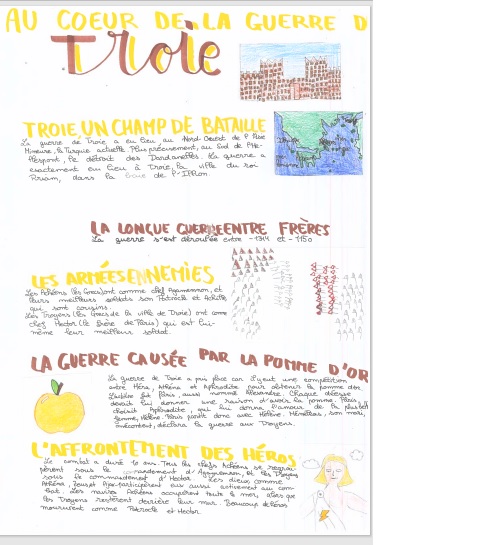 AU COEUR DE LA GUERRE D
Troie
TROIE, UN CHAMP DE BATAILLE
La guerre de Troie a eu lieu au Nord-Ouest de l'Asie
Mineure, la Turquie actuelle. Plus précisément, au Sud de l'He-
llespont, le détroit des Dardanelles. La guerre a
exactement eu lieu à Troie, la ville du roi
Priam, dans la de l'
LA LONGUE GUERRE ENTRE FRÈRES
La guerre s'est déroulée entre et
LES ARMÉES ENNEMIES
Les Achéens (les Grecs) ont comme chef Agamemnon, et
leurs meilleurs soldats son Patrocle et Achille
qui sont cousins.
Les Troyens (les Grecs de la ville de Troie) ont comme
chef Hector (le frère de Paris) qui est lui-
même leur meilleur soldat.
LA GUERRE CAUSÉE PAR LA POMME D'OR
La guerre de Troie a pris place car il y eut une compétition
entre Héra, Athéna et Aphrodite pour obtenir la pomme d'or.
fut Paris, aussi nommé Alexandre. Chaque déesse
devait lui donner une raison d'avoir la pomme. Paris
choisit Aphrodite, qui lui donna l'amour de la plus belle
femme, Hélène. Paris partit donc avec Hélène. Ménélas, son mari,
mécontent, déclara la guerre aux Troyens.
L'AFFRONTEMENT DES HÉROS
Le combat a duré 10 ans. Tous les chefs Achéens se
sous le commandement d'Agamemnon, et les Troyens
sous le commandement d'Hector. Les dieux comme
Athéna, Zeus et participèrent eux aussi activement au com-
bat. Les navires Achéens occupèrent toute la mer, alors que
les Troyens restèrent derrière leur mur. Beaucoup de héros
moururent comme Patrocle et Hector.